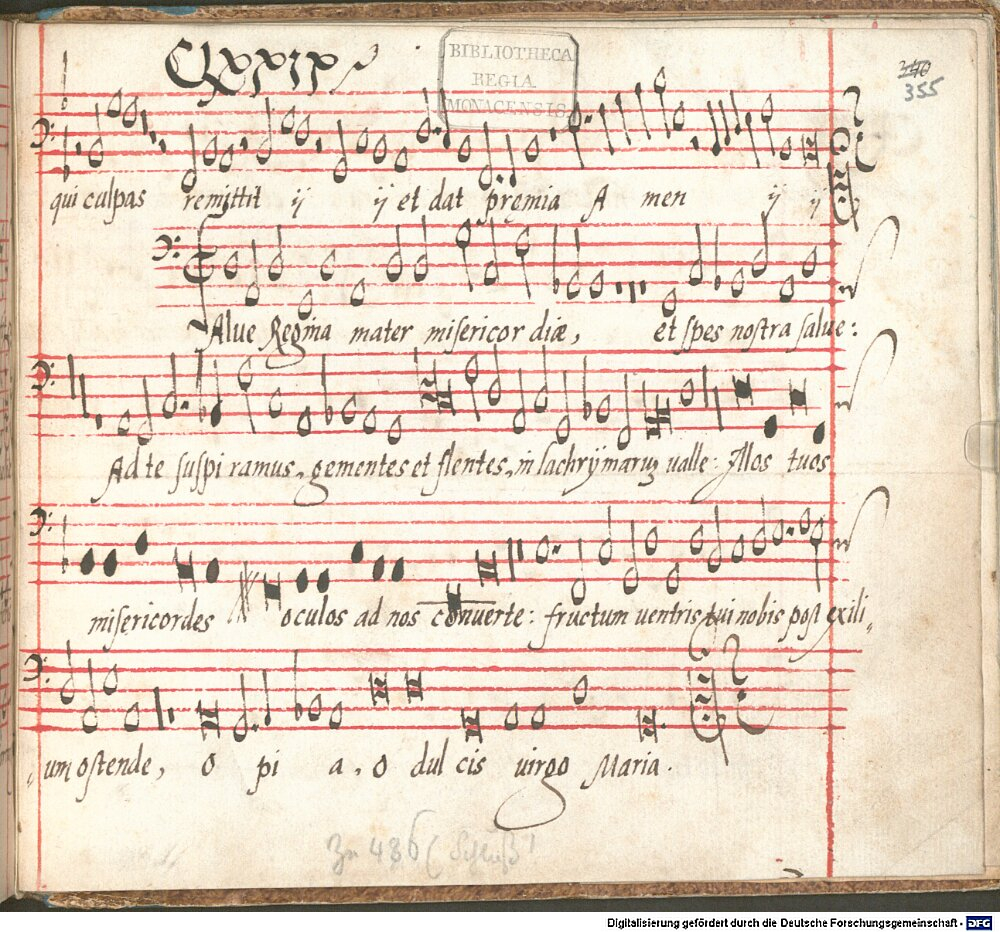 BIBLIOTHECA
REGIA
MONACENSIS
240
355
qui culpas remittit ij ij et dat premia A men ij ij
SAlue Regina mater misericor diæ, et spes nostra salue:
Ad te suspi ramus, gementes et flentes, in lachrÿmaruȝ ualle: Illos tuos
misericordes oculos ad nos conuerte: fructum uentris tui nobis post exili„
„um ostende, o pi a, o dul cis uirgo Maria.
Zu 486 (Schluß!
Digitalisierung gefördert durch die Deutsche Forschungsgemeinschaft - DFG